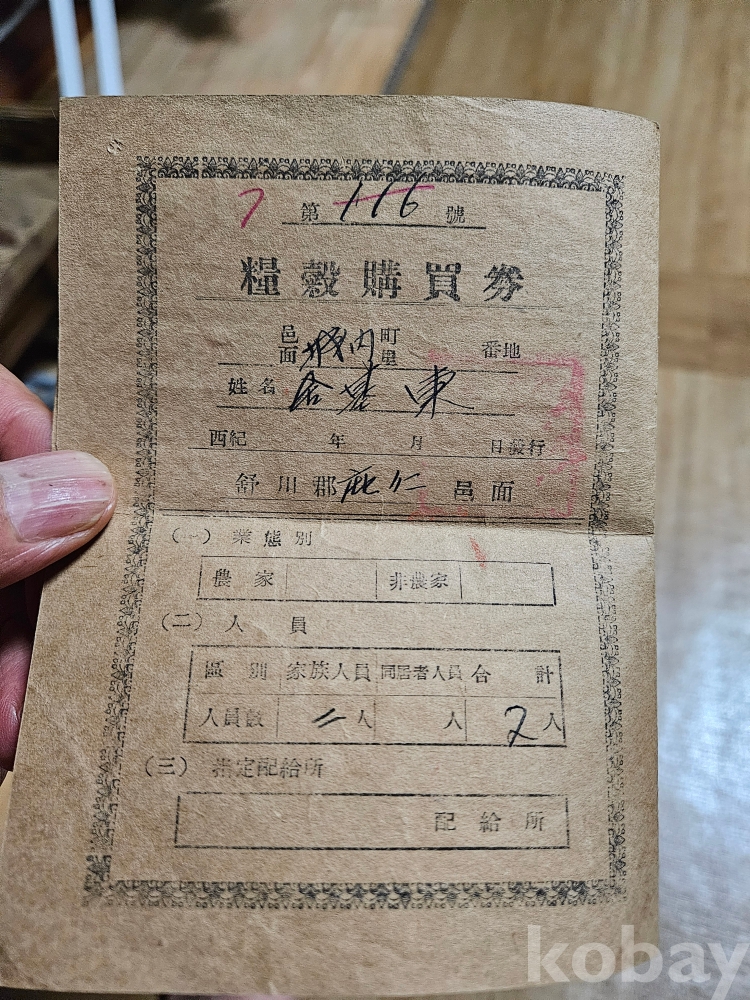 7 第 116 號
糧穀購買券
邑面 城内 町里 番地
姓名 基東
西紀 年 月 日發行
舒川郡 庇仁 邑面
(一) 業態別
農家 非農家
(二) 人員
區別 家族人員 同居者人員 合計
人員數 二人 人 2人
(三) 指定配給所
配給所
kobay